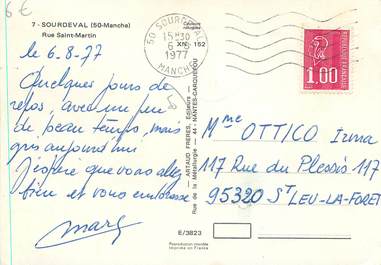 6€
7 - SOURDEVAL (50-Manche)
Rue Saint-Martin
le 6.8.77
Quelques jours de
repos, avec un peu
de beau temps, mais
gris aujourd'hui
J'espère que vous allez
bien et vous embrasse
Mary
Couleurs
naturelles
XN 152
ARTAUD FRERES, Editeurs
Rue de la Métallurgie - 44 - NANTES-CARQUEFOU
E/3823
Reproduction interdite
Imprimé en France
50 SOURDEVAL
15H30
6-8
1977
MANCHE
1.00
REPUBLIQUE FRANÇAISE
Mme OTTICO Irma
117 Rue du Plessis 117
95320 ST LEU-LA-FORET